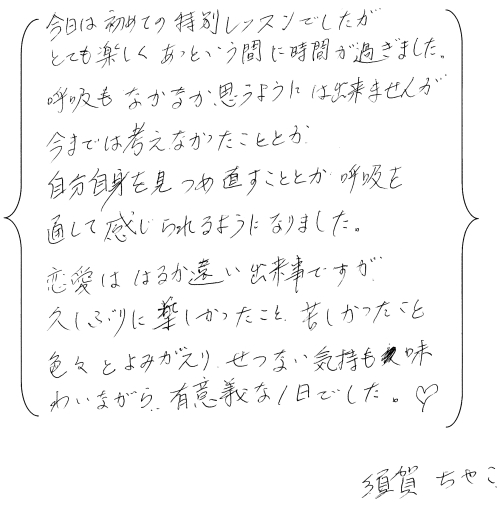 今日は初めての特別レッスンでしたが
とても楽しくあっという間に時間が過ぎました。
呼吸もなかなか思うようには出来ませんが
今までは考えなかったこととか
自分自身を見つめ直すこととか呼吸を
通して感じられるようになりました。
恋愛ははるか遠い出来事ですが
久しぶりに楽しかったこと、苦しかったこと
色々とよみがえり、せつない気持も味
わいながら、有意義な1日でした。♡
須賀 ちやこ